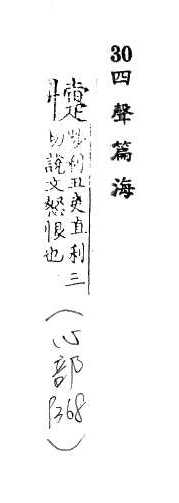 30四聲篇海
陟利丑吏直利三
切說文怒恨也
(心部P368)